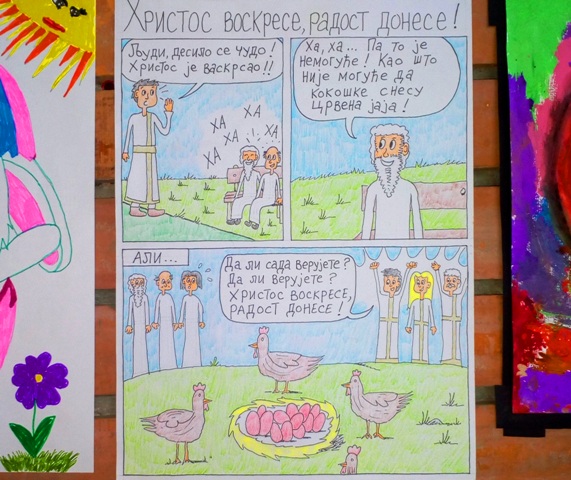 Христос воскресе, радост донесе!
Људи, десило се чудо!
Христос је васкрсао!!
ХА
ХА
ХА
ХА
ХА
Ха, ха... Па то је
немогуће! Као што
није могуће да
кокошке снесу
црвена јаја!
АЛИ...
Да ли сада верујете?
Да ли верујете?
Христос воскресе,
радост донесе!